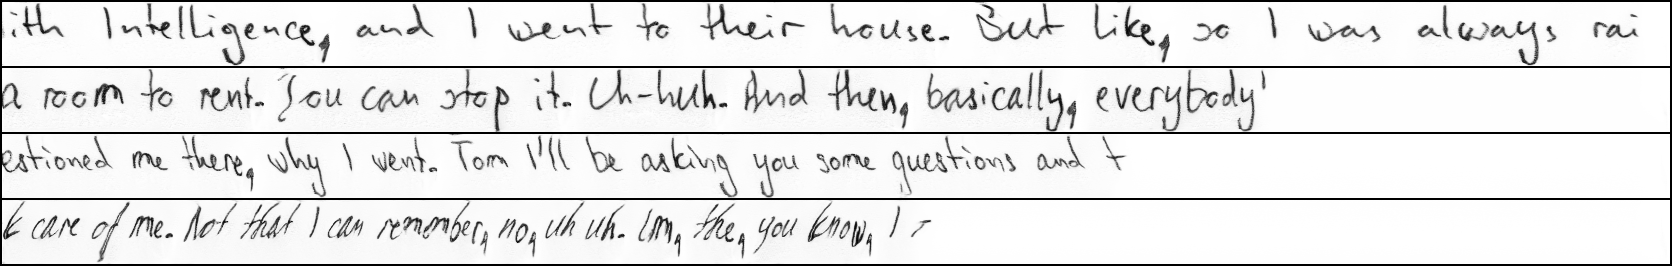 ith Intelligence, and I went to their house. But like, so I was always rai
a room to rent. You can stop it. Uh-huh. And then, basically, everybody'
estioned me there, why I went. Tom I'll be asking you some questions and t
k care of me. Not that I can remember, no, uh uh. Um, the, you know, I